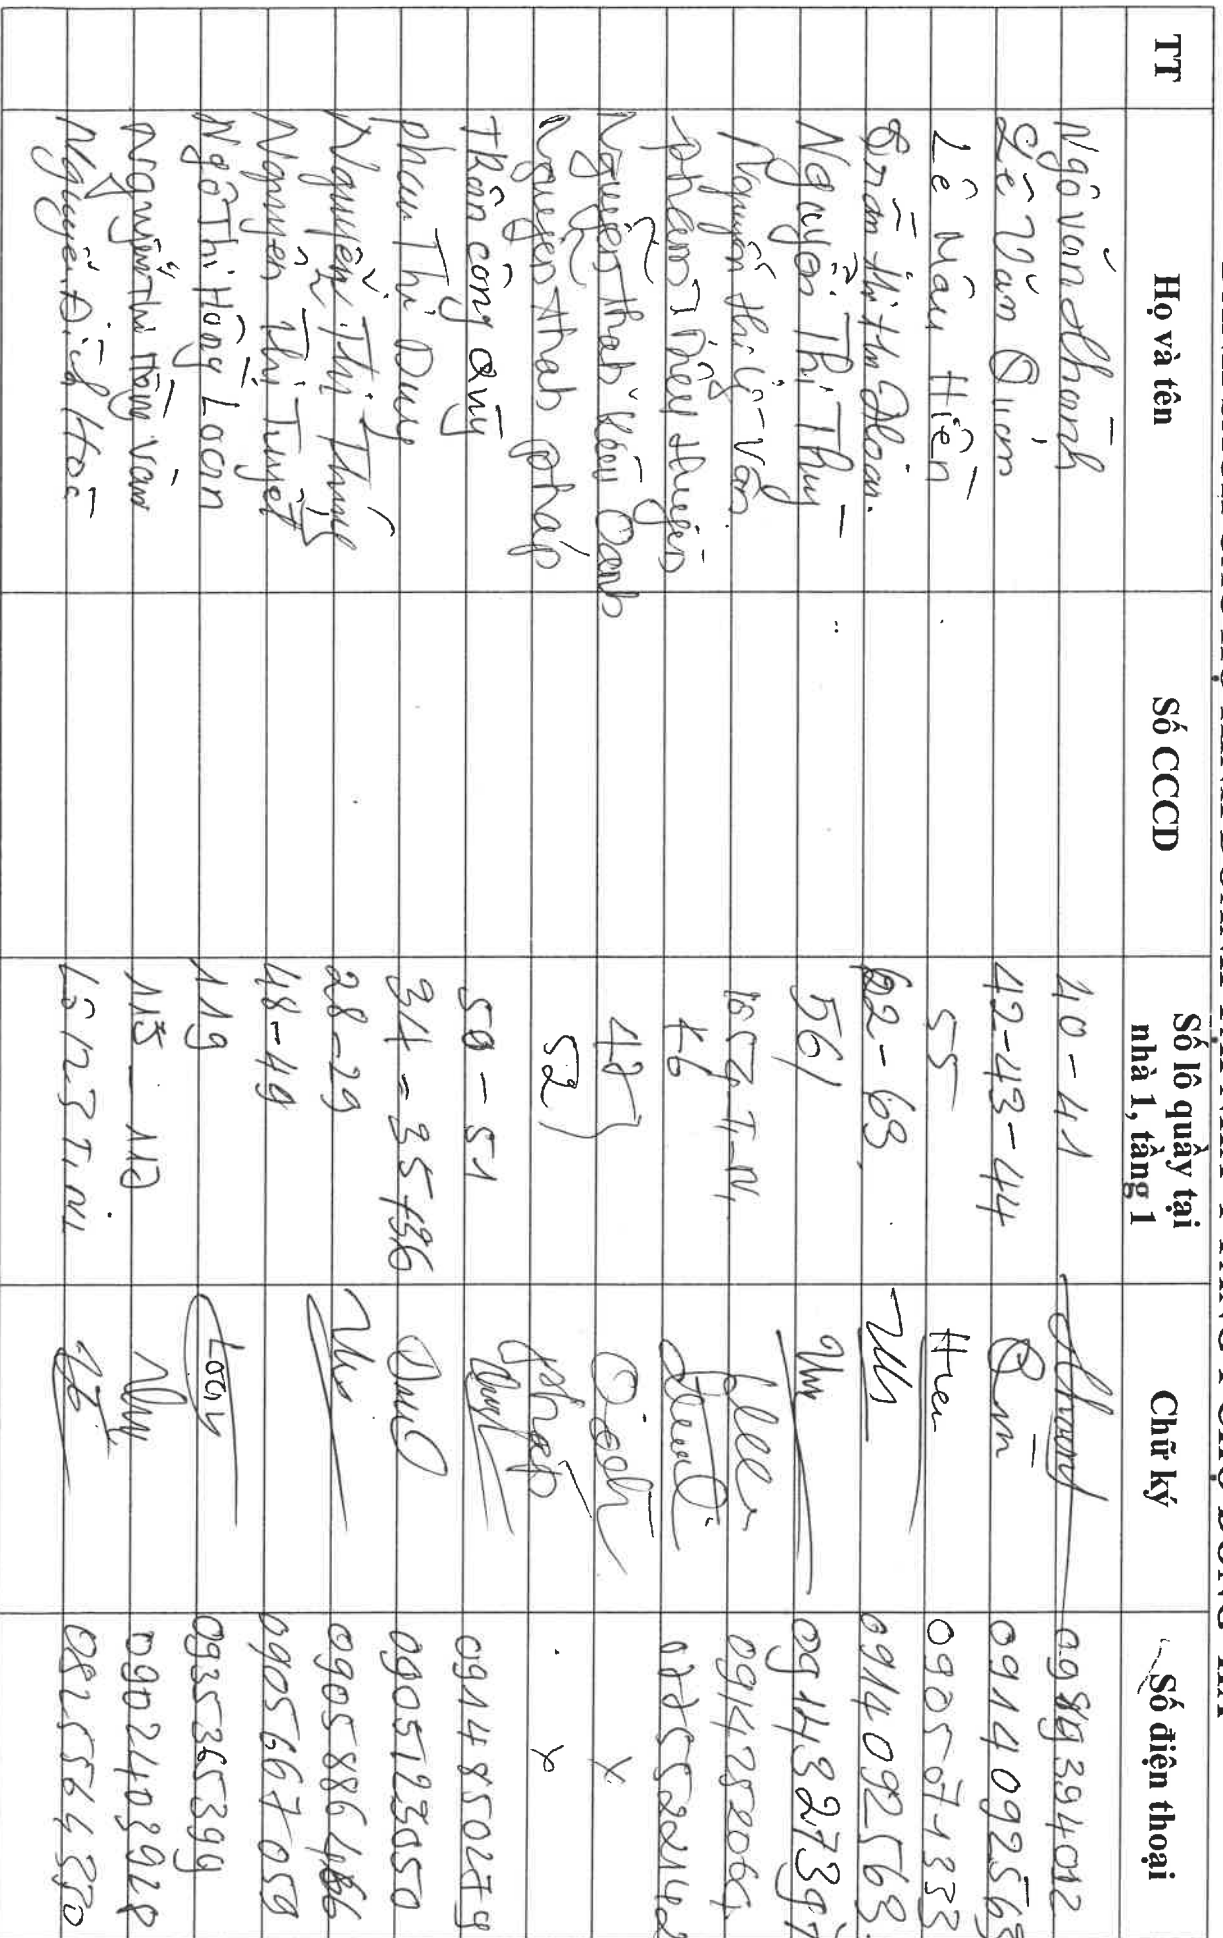 TT Họ và tên Số CCCD Số lô quầy tại nhà 1, tầng 1 Chữ ký Số điện thoại
Ngô Văn Thành 40-41 0989394012
Lê Văn Quám 42-43-44 091409256
Lê Mậu Hiền 55 Hien 0905071333
Trần Thị Thu Loan. 62-63 0914092563
Nguyễn Thị Thuỷ 561 0914327397
Nguyễn Thị Lý Vân 0914252069
Phạm Thuỷ Huyền 46
Nguyễn Thanh Kiều Oanh 47 Oanh x
Nguyễn Thanh Pháp 52 Pháp x
Trần Công Quý 50-51 0914850279
Phan Thị Dung 34=35+36 0905123050
Nguyễn Thị Thuý 28-29 0905886466
Nguyễn Thị Tuyết 48-49 0905667059
Ngô Thị Hồng Loan 119 Loan 0935365399
Nguyễn Thị Hồng Vân 0902403928
Nguyễn Đình Hoà Lô 123 T.N. 0825564350